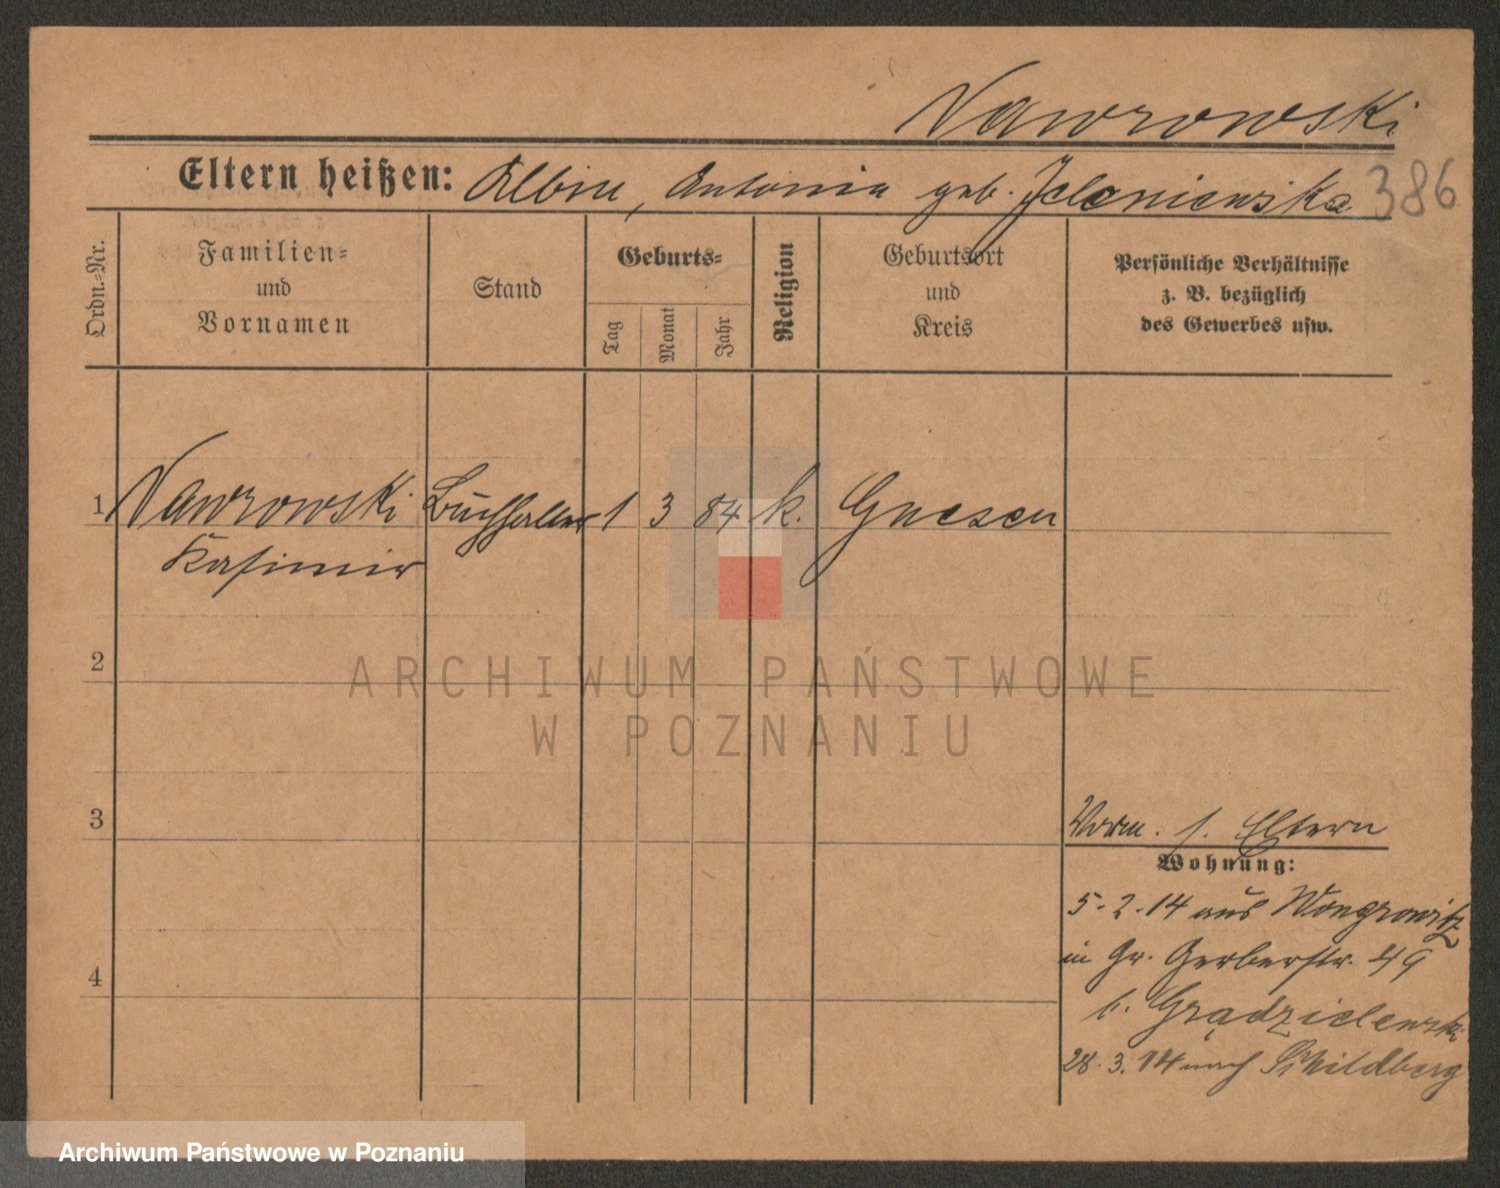 Nawrowski
Eltern heißen: Albin, Antonie geb. Jeleniewska
386
Ordn.-Nr.
Familien-
und
Vornamen
Stand
Geburts-
Tag
Monat
Jahr
Religion
Geburtsort
und
Kreis
Persönliche Verhältnisse
z. B. bezüglich
des Gewerbes usw.
1 Nawrowski Buchhalter 1 3 84 k. Gnesen
Kasimir
2
ARCHIWUM PAŃSTWOWE
W POZNANIU
3
Vorm. s. Eltern
Wohnung:
5.2.14 aus Wongrowitz
in Gr. Gerberstr. 49
4
b. Grądzielewski
28.3.14 nach Schildberg
Archiwum Państwowe w Poznaniu